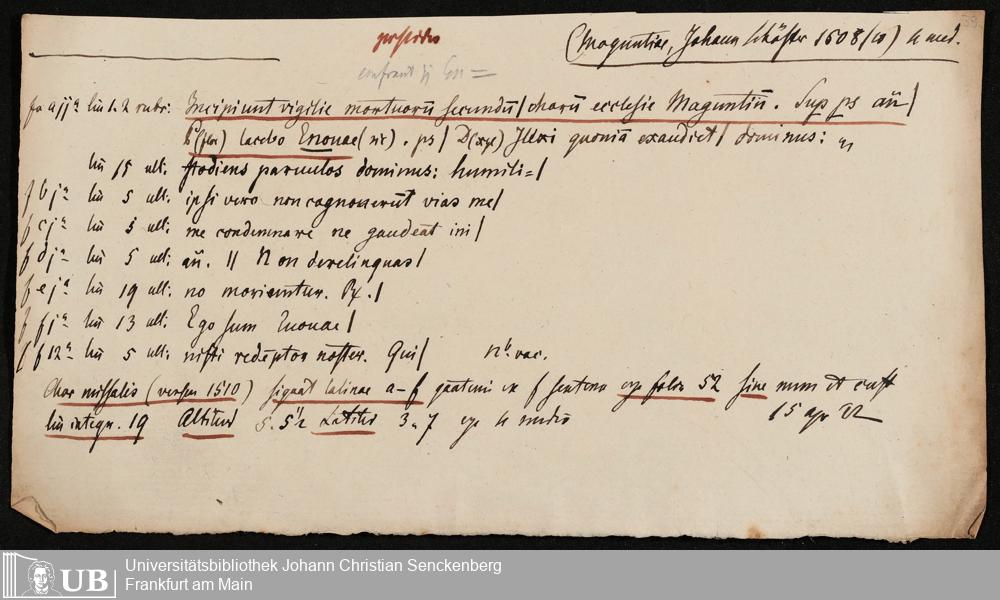 39.
(Maguntiae, Johann Schöffer 1508/10) 4 med.
confront
fo a jjª lin 1. 2 rubr: Incipiunt vigilie mortuorū secundū / chorū ecclesie Maguntiñ. Sup ps añ /
Placebo Euouae (nir). ps / Dilexi quoniā exaudiet / dominus:
lin 15 ult: stodiens paruulos dominus: humili= /
f b jª lin 5 ult: ipsi vero non cognouerūt vias me /
f c jª lin 5 ult: me condemnare ne gaudeāt ini /
f d jª lin 5 ult: añ. || Non derelinquas /
f e jª lin 19 ult: no morientur. Px. /
f f jª lin 13 ult: Ego sum Euouae /
f f 12ª lin 5 ult: nisti redēptor noster. Qui / vac.
Char missalis ( 1510) signat latinae a–f f folia 52 sine num et cust
lin integr. 19 Altitud 5. 5½ Latitud 3. 7
15 apr 22
Universitätsbibliothek Johann Christian Senckenberg
Frankfurt am Main
UB